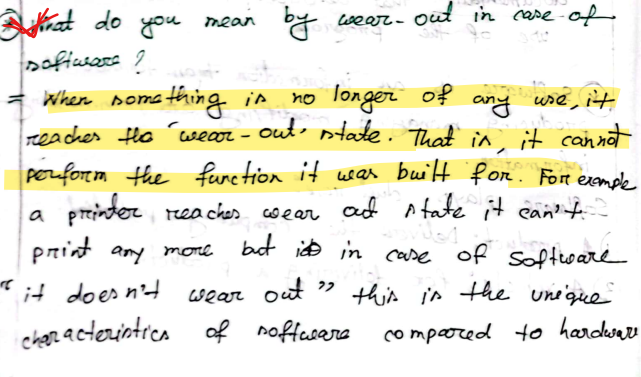 What do you mean by wear-out in case of
software?
= When something is no longer of any use, it
reaches the "wear-out" state. That is, it cannot
perform the function it was built for. For example
a printer reaches wear out state it can't
print any more but in case of Software
"it doesn't wear out" this is the unique
characteristics of software compared to hardware